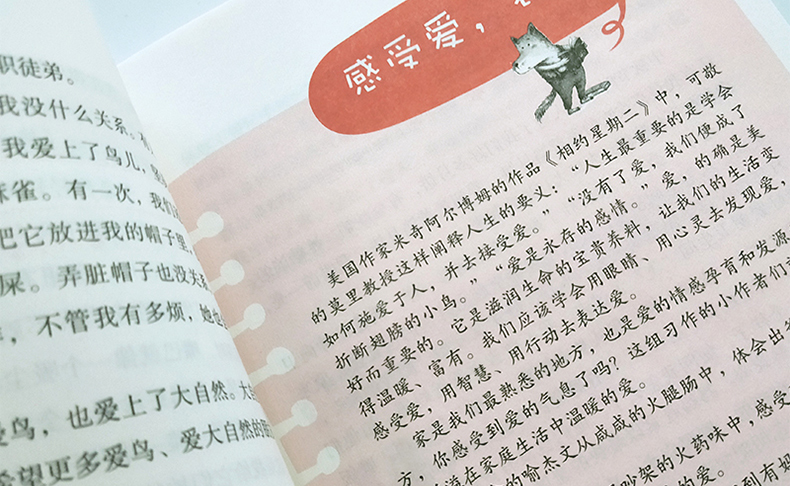 职徒弟。
我没什么关系。
我爱上了鸟儿,
麻雀。有一次,我们
把它放进我的帽子里
屎。弄脏帽子也没关
不管我有多烦,她也
爱鸟,也爱上了大自然。大
希望更多爱鸟、爱大自然的
感受爱,
美国作家米奇阿尔博姆的作品《相约星期二》中,可敬
的莫里教授这样阐释人生的要义:“人生最重要的是学会
如何施爱于人,并去接受爱。”“没有了爱,我们便成了
折断翅膀的小鸟。”“爱是永存的感情。”爱,的确是美
好而重要的。它是滋润生命的宝贵养料,让我们的生活变
得温暖、富有。我们应该学会用眼睛、用心灵去发现爱,
感受爱,用智慧、用行动去表达爱。
家是我们最熟悉的地方,也是爱的情感孕育和发源
方,你感受到爱的气息了吗?这组习作的小作者们
道在家庭生活中温暖的爱。
的喻杰文从咸咸的火腿肠中,体会出
吵架的火药味中,感受
的爱。
到有